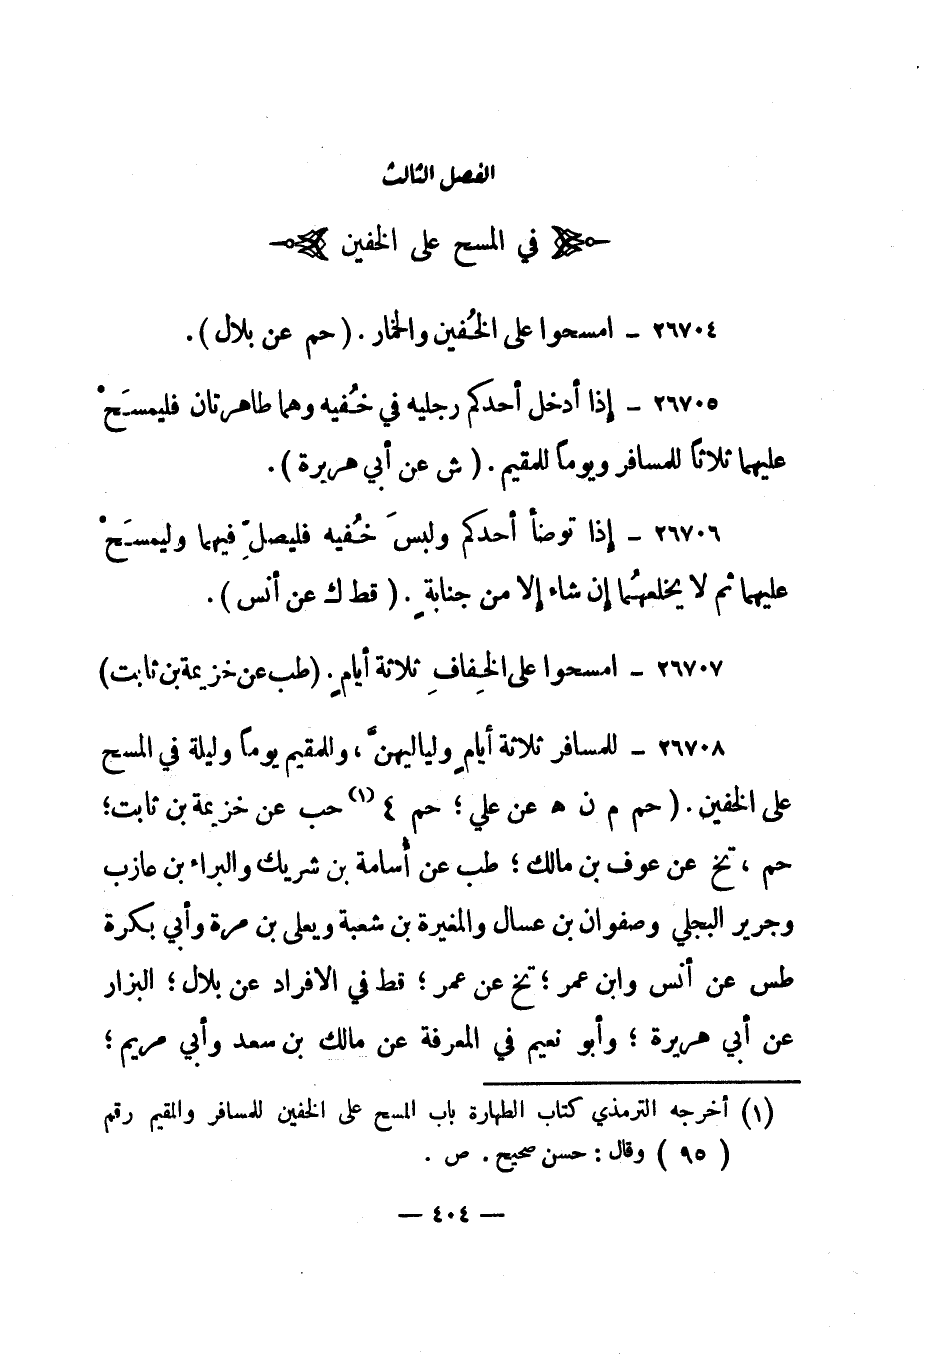 الفصل الثالث
في المسح على الخفين
٢٦٧٠٤ – امسحوا على الخُفين والخمار . ( حم عن بلال ) .
٢٦٧٠٥ – إذا أدخل أحدكم رجليه في خُفيه وهما طاهرتان فليمسَحْ
عليهما ثلاثاً للمسافر ويوماً للمقيم . ( ش عن أبي هريرة ) .
٢٦٧٠٦ – إذا توضأ أحدكم ولبسَ خُفيه فليصلِّ فيهما وليمسَحْ
عليهما ثم لا يخلعهُما إن شاء إلا من جنابةٍ . ( قط ك عن أنس ) .
٢٦٧٠٧ – امسحوا على الخِفافِ ثلاثة أيامٍ . (طب عن خزيمة بن ثابت)
٢٦٧٠٨ – للمسافر ثلاثة أيامٍ ولياليهنَّ ، وللمقيم يوماً وليلة في المسح
على الخفين . ( حم م ن ه عن علي ؛ حم ٤ (١) حب عن خزيمة بن ثابت ؛
حم ، تخ عن عوف بن مالك ؛ طب عن أُسامة بن شريك والبراء بن عازب
وجرير البجلي وصفوان بن عسال والمغيرة بن شعبة ويعلى بن مرة وأبي بكرة
طس عن أنس وابن عمر ؛ تخ عن عمر ؛ قط في الافراد عن بلال ؛ البزار
عن أبي هريرة ؛ وأبو نعيم في المعرفة عن مالك بن سعد وأبي مريم ؛
(١) أخرجه الترمذي كتاب الطهارة باب المسح على الخفين للمسافر والمقيم رقم
( ٩٥ ) وقال : حسن صحيح . ص .
— ٤٠٤ —